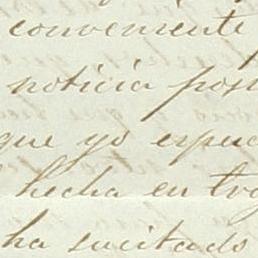 conveniente
noticia pos
que yo espe
hecha en tro
ha sucitado